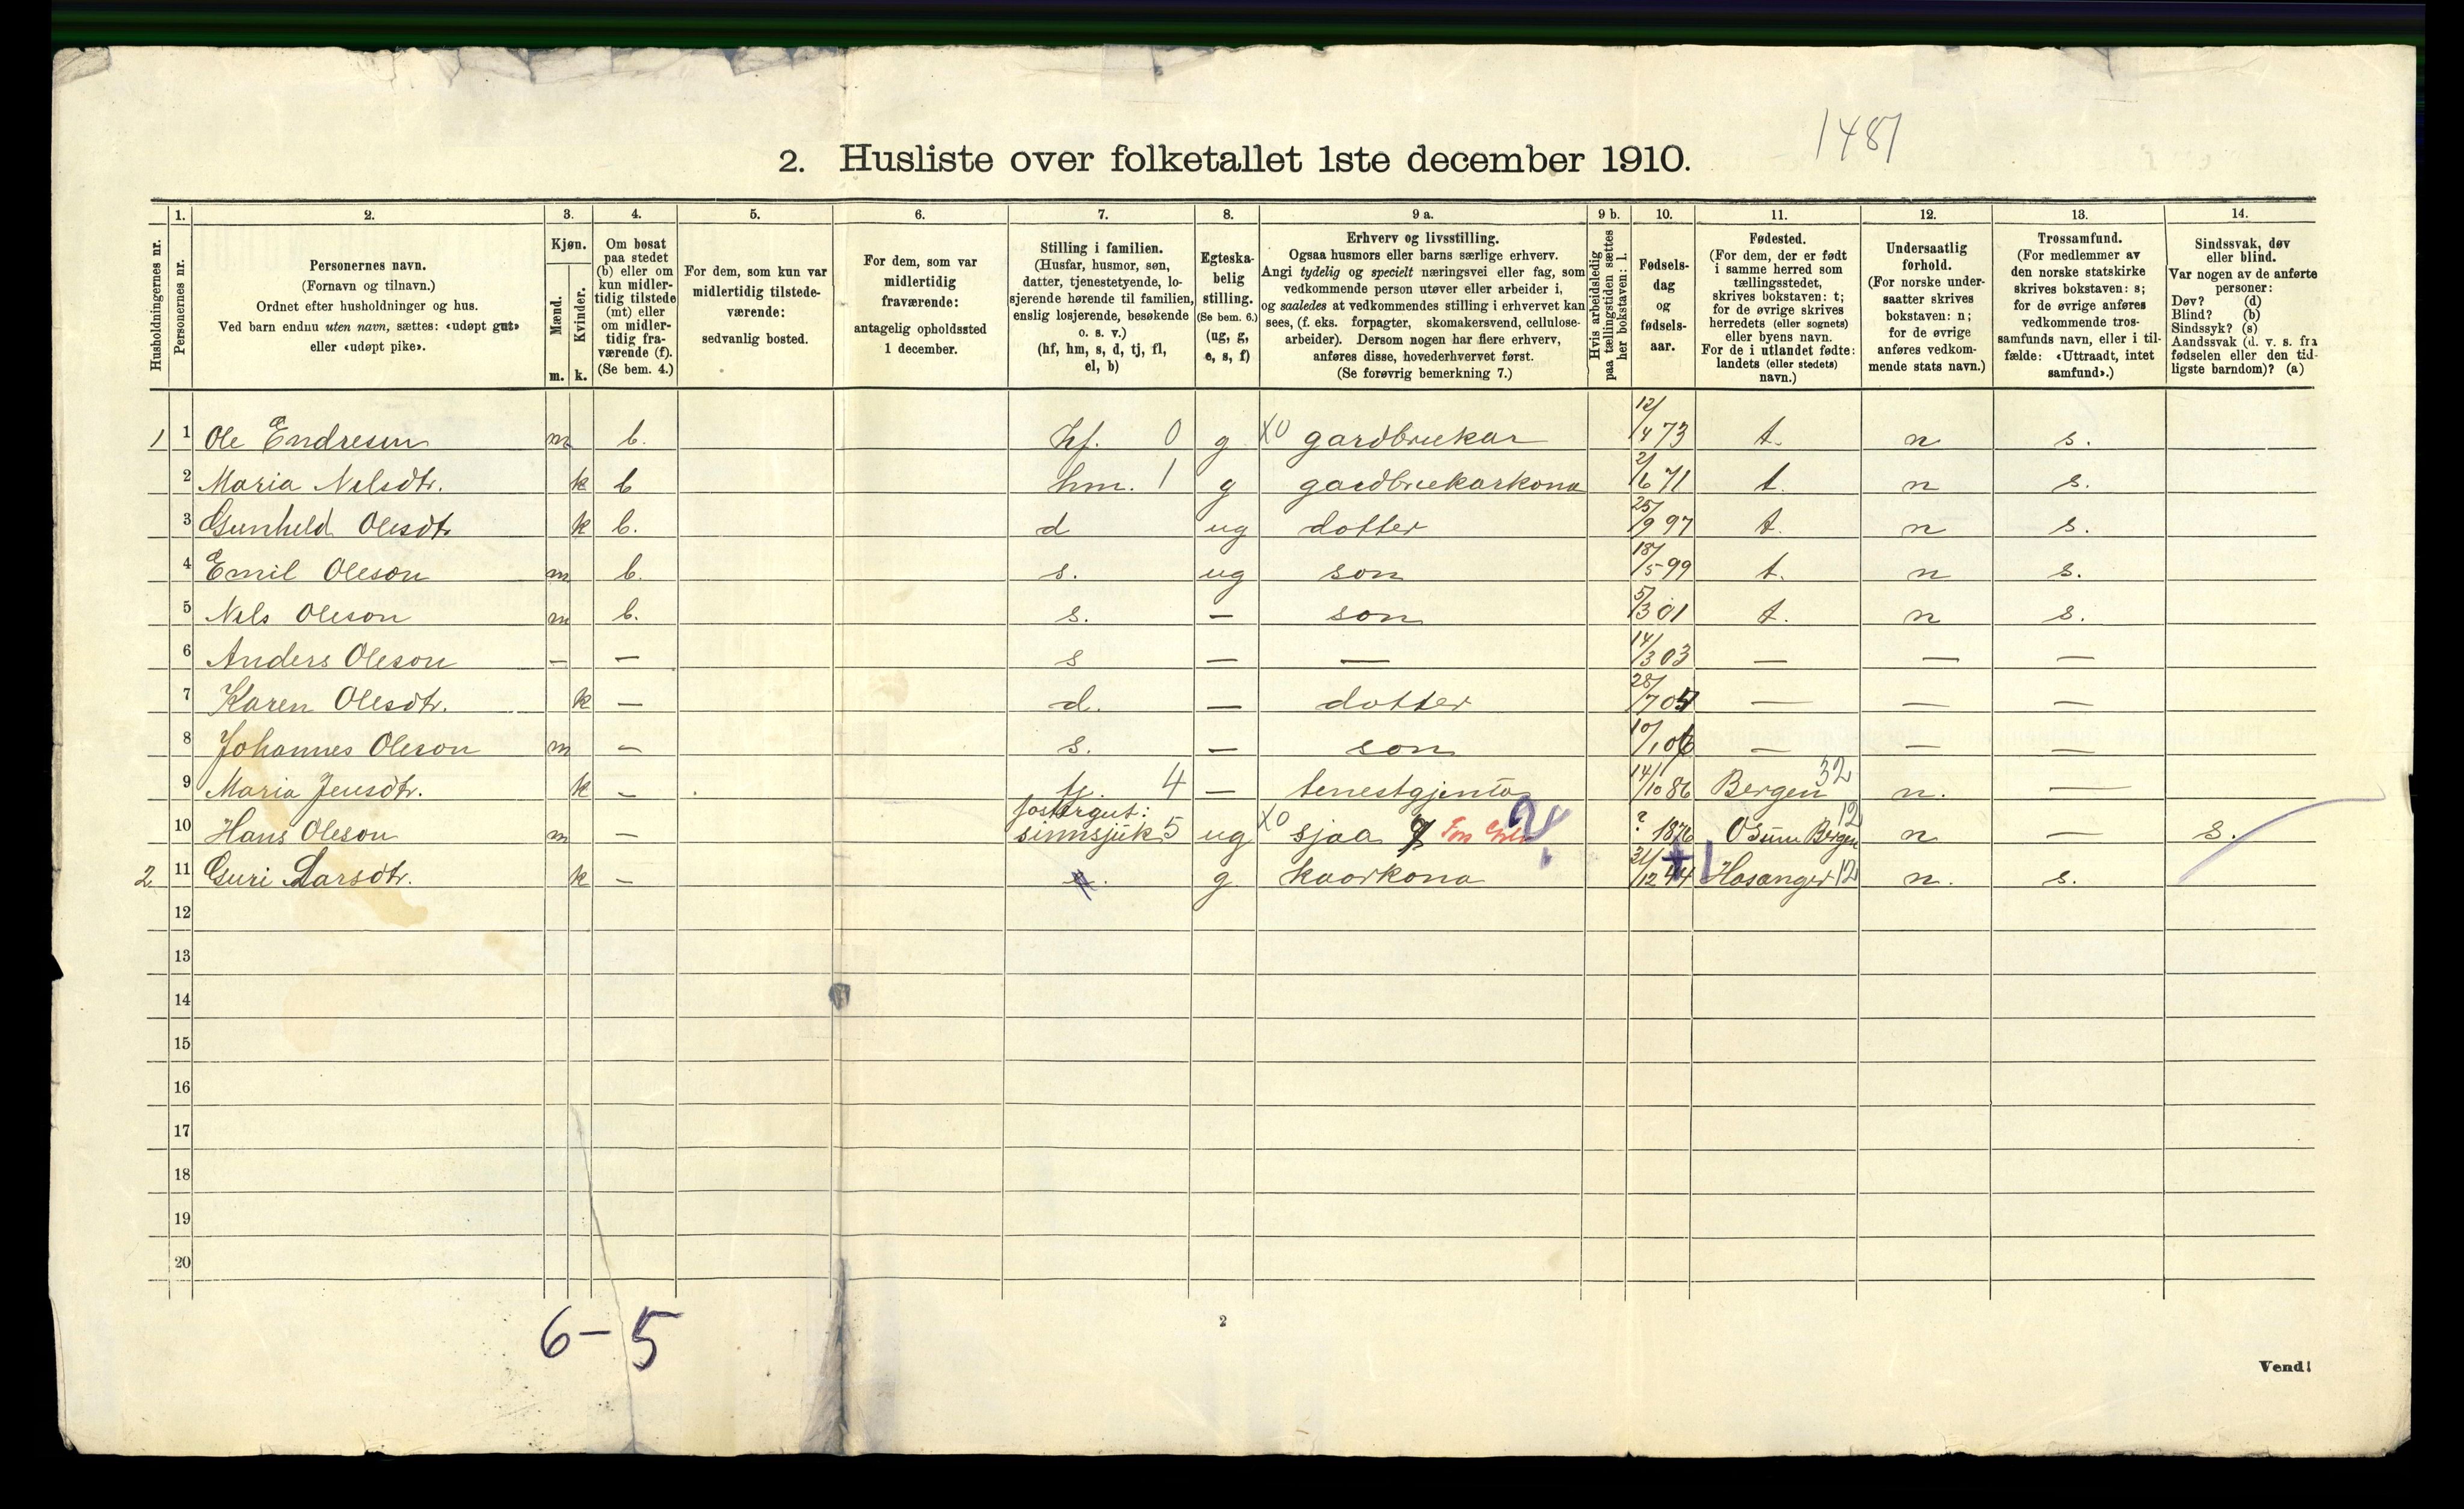 1481
2. Husliste over folketallet 1ste december 1910.
Husholdningernes nr.
1.
Personernes nr.
2.
Personernes navn.
(Fornavn og tilnavn.)
Ordnet efter husholdninger og hus.
Ved barn endnu uten navn, sættes: «udøpt gut»
eller «udøpt pike».
3.
Kjøn.
Mænd.
Kvinder.
m. k.
4.
Om bosat
paa stedet
(b) eller om
kun midler-
tidig tilstede
(mt) eller
om midler-
tidig fra-
værende (f).
(Se bem. 4.)
5.
For dem, som kun var
midlertidig tilstede-
værende:
sedvanlig bosted.
6.
For dem, som var
midlertidig
fraværende:
antagelig opholdssted
1 december.
7.
Stilling i familien.
(Husfar, husmor, søn,
datter, tjenestetyende, lo-
sjerende hørende til familien,
enslig losjerende, besøkende
o. s. v.)
(hf, hm, s, d, tj, fl,
el, b)
8.
Egteska-
belig
stilling.
(Se bem. 6.)
(ug, g,
e, s, f)
9 a.
Erhverv og livsstilling.
Ogsaa husmors eller barns særlige erhverv.
Angi tydelig og specielt næringsvei eller fag, som
vedkommende person utøver eller arbeider i,
og saaledes at vedkommendes stilling i erhvervet kan
sees, (f. eks. forpagter, skomakersvend, cellulose-
arbeider). Dersom nogen har flere erhverv,
anføres disse, hovederhvervet først.
(Se forøvrig bemerkning 7.)
9 b.
Hvis arbeidsledig
paa tællingstiden sættes
her bokstaven: l.
10.
Fødsels-
dag
og
fødsels-
aar.
11.
Fødested.
(For dem, der er født
i samme herred som
tællingsstedet,
skrives bokstaven: t;
for de øvrige skrives
herredets (eller sognets)
eller byens navn.
For de i utlandet fødte:
landets (eller stedets)
navn.)
12.
Undersaatlig
forhold.
(For norske under-
saatter skrives
bokstaven: n;
for de øvrige
anføres vedkom-
mende stats navn.)
13.
Trossamfund.
(For medlemmer av
den norske statskirke
skrives bokstaven: s;
for de øvrige anføres
vedkommende tros-
samfunds navn, eller i til-
fælde: «Uttraadt, intet
samfund».)
14.
Sindssvak, døv
eller blind.
Var nogen av de anførte
personer:
Døv? (d)
Blind? (b)
Sindssyk? (s)
Aandssvak (d. v. s. fra
fødselen eller den tid-
ligste barndom)? (a)
1 1 Ole Endresen m b. hf. 0 g X0 gardbrukar 12/4 73 t. n s.
2 Maria Nelsdtr. k b hm. 1 g gardbrukarkona 2/6 71 t. n s.
3 Gunhild Olesdtr k b. d ug dotter 25/9 97 t. n s.
4 Emil Oleson m b. s. ug son 18/5 99 t. n s.
5 Nels Oleson m b. s. — son 5/3 01 t. n s.
6 Anders Oleson — — s — — 14/3 03 — — —
7 Karen Olesdtr. k — d. — dotter 28/7 04 — — —
8 Johannes Oleson m — s. — son 10/1 06 — — —
9 Maria Jensdtr. k — tj. 4 — tenestgjenta 14/10 86 Bergen 32 n. —
10 Hans Oleson m — fostergut: sinnsjuk 5 ug X0 sjaa ? 1876 Bergen 12 n — s.
2 11 Guri Larsdtr. k — g kaarkona 31/12 44 Hosanger 12 n. s.
12
13
14
15
16
17
18
19
20
6 – 5
2
Vend!